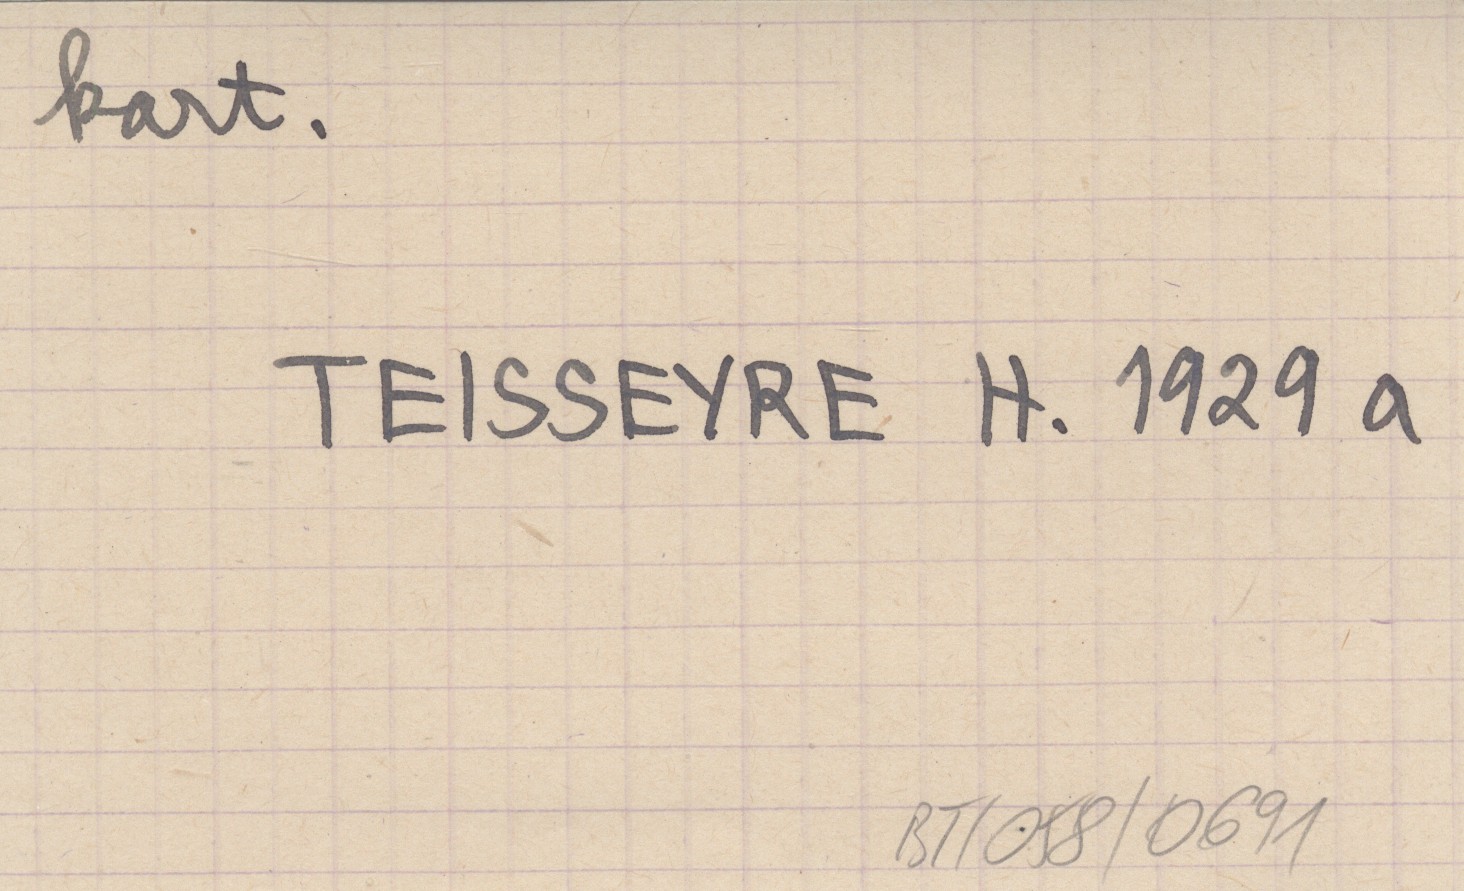 kart.
TEISSEYRE H. 1929 a
BT/058/0691